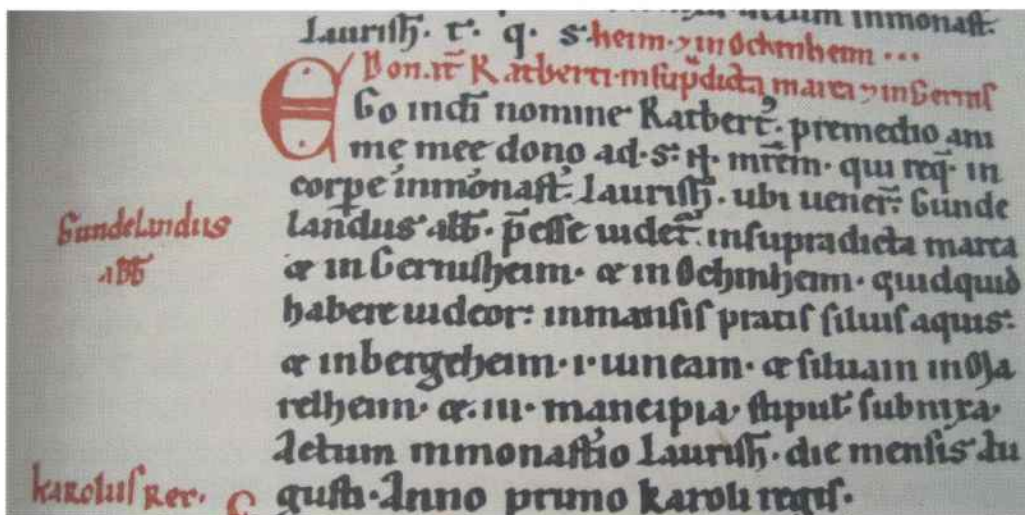 actum inmonast.
Laurish̄. t. q. s. heim. ⁊ in Ochinheim ...
Donat̄ Ratberti. insup̄dicta marca ⁊ in Gerins
EGo indī nomine Ratbert᷒. premedio ani
me mee dono ad. s. N. mr̄em. qui req̄. in
corpe inmonast. Laurish̄. ubi uener. Gunde
landus abb̄. p̄esse uidet̄. insupradicta marca
& in Gernisheim. & in Ochinheim. quidquid
habere uideor. inmansis pratis siluis aquis.
& inbergeheim. i. uineam. & siluam in
relheim. &. iii. mancipia, stiput̄ subnixa,
Actum inmonastio Laurish̄. die mensis Au
gusti. Anno primo karoli regis.
Gundelandus
abb̄
karolus Rex.